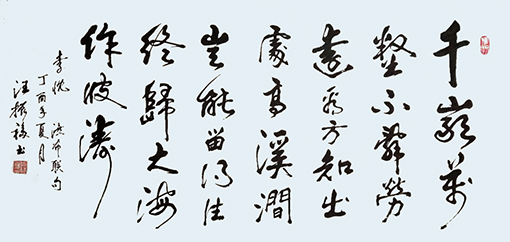 千巖萬
壑不辭勞
遠看方知出
處高溪澗
豈能留得住
終歸大海
作波濤
李忱 瀑布聯句
丁酉年夏月
汪振書